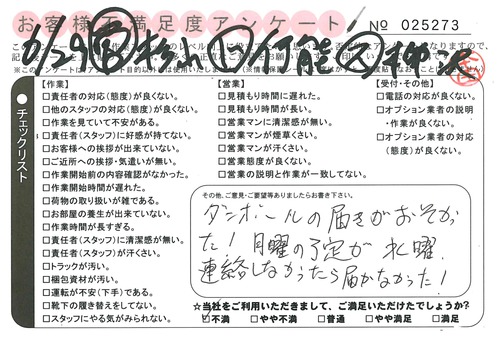 お客様不満足度アンケート
№ 025273
8/29
【作業】
□責任者の対応(態度)が良くない。
□他のスタッフの対応(態度)が良くない。
□作業を見ていて不安がある。
□責任者(スタッフ)に好感が持てない。
□お客様への挨拶が出来ていない。
□ご近所への挨拶・気遣いが無い。
□作業開始前の内容確認がなかった。
□作業開始時間が遅れた。
□荷物の取り扱いが雑である。
□お部屋の養生が出来ていない。
□作業時間が長すぎる。
□責任者(スタッフ)に清潔感が無い。
□責任者(スタッフ)が汗くさい。
□トラックが汚い。
□梱包資材が汚い。
□運転が不安(下手)である。
□靴下の履き替えをしてない。
□スタッフにやる気がみられない。
チェックリスト
【営業】
□見積もり時間に遅れた。
□見積もり時間が長い。
□営業マンに清潔感が無い。
□営業マンが煙草くさい。
□営業マンが汗くさい。
□営業態度が良くない。
□営業の説明と作業が一致してない。
【受付・その他】
□電話の対応が良くない。
□オプション業者の説明・作業が良くない。
□オプション業者の対応(態度)が良くない。
その他、ご意見・ご要望等ありましたらお書き下さい。
ダンボールの届きがおそかった!月曜の予定が水曜
連絡しなかったら届かなかった!
☆当社をご利用いただきまして、ご満足いただけたでしょうか?
☑不満 □やや不満 □普通 □やや満足 □満足